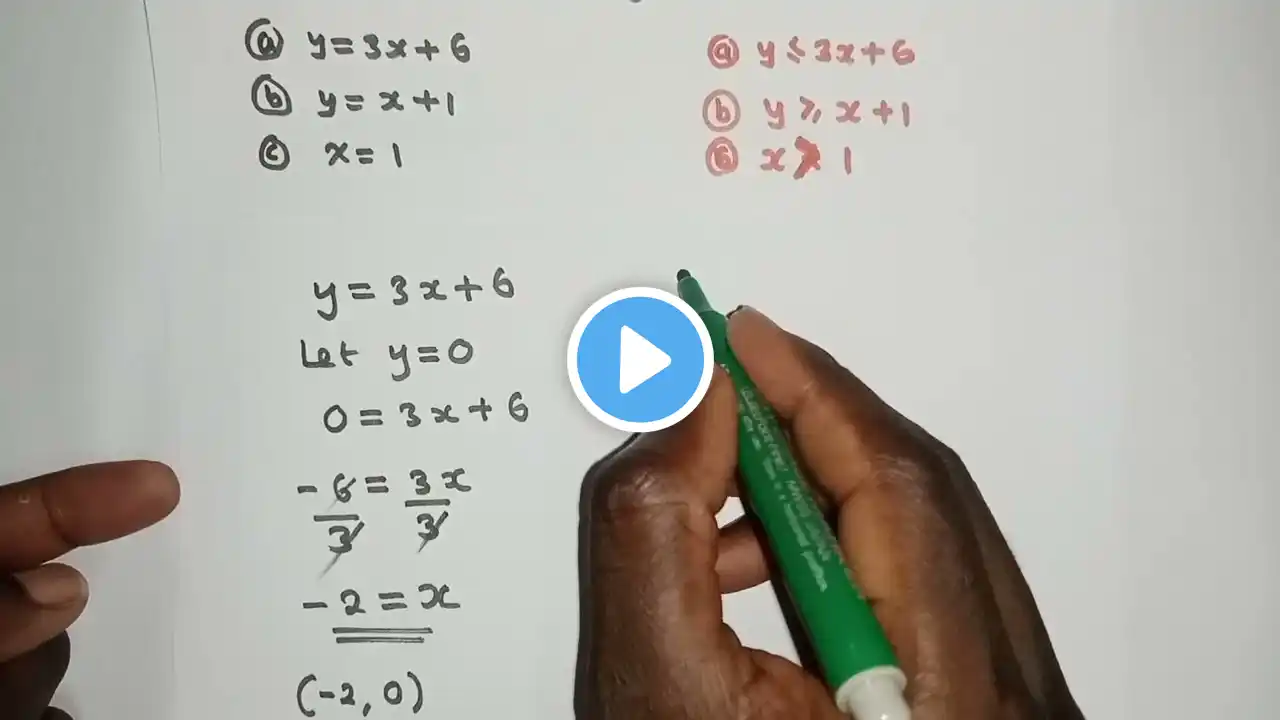 ⓐ y = 3x + 6
ⓑ y = x + 1
ⓒ x = 1
ⓐ y ≤ 3x + 6
ⓑ y ⩾ x + 1
x > 1
y = 3x + 6
Let y = 0
0 = 3x + 6
-6/3 = 3x/3
-2 = x
(-2, 0)